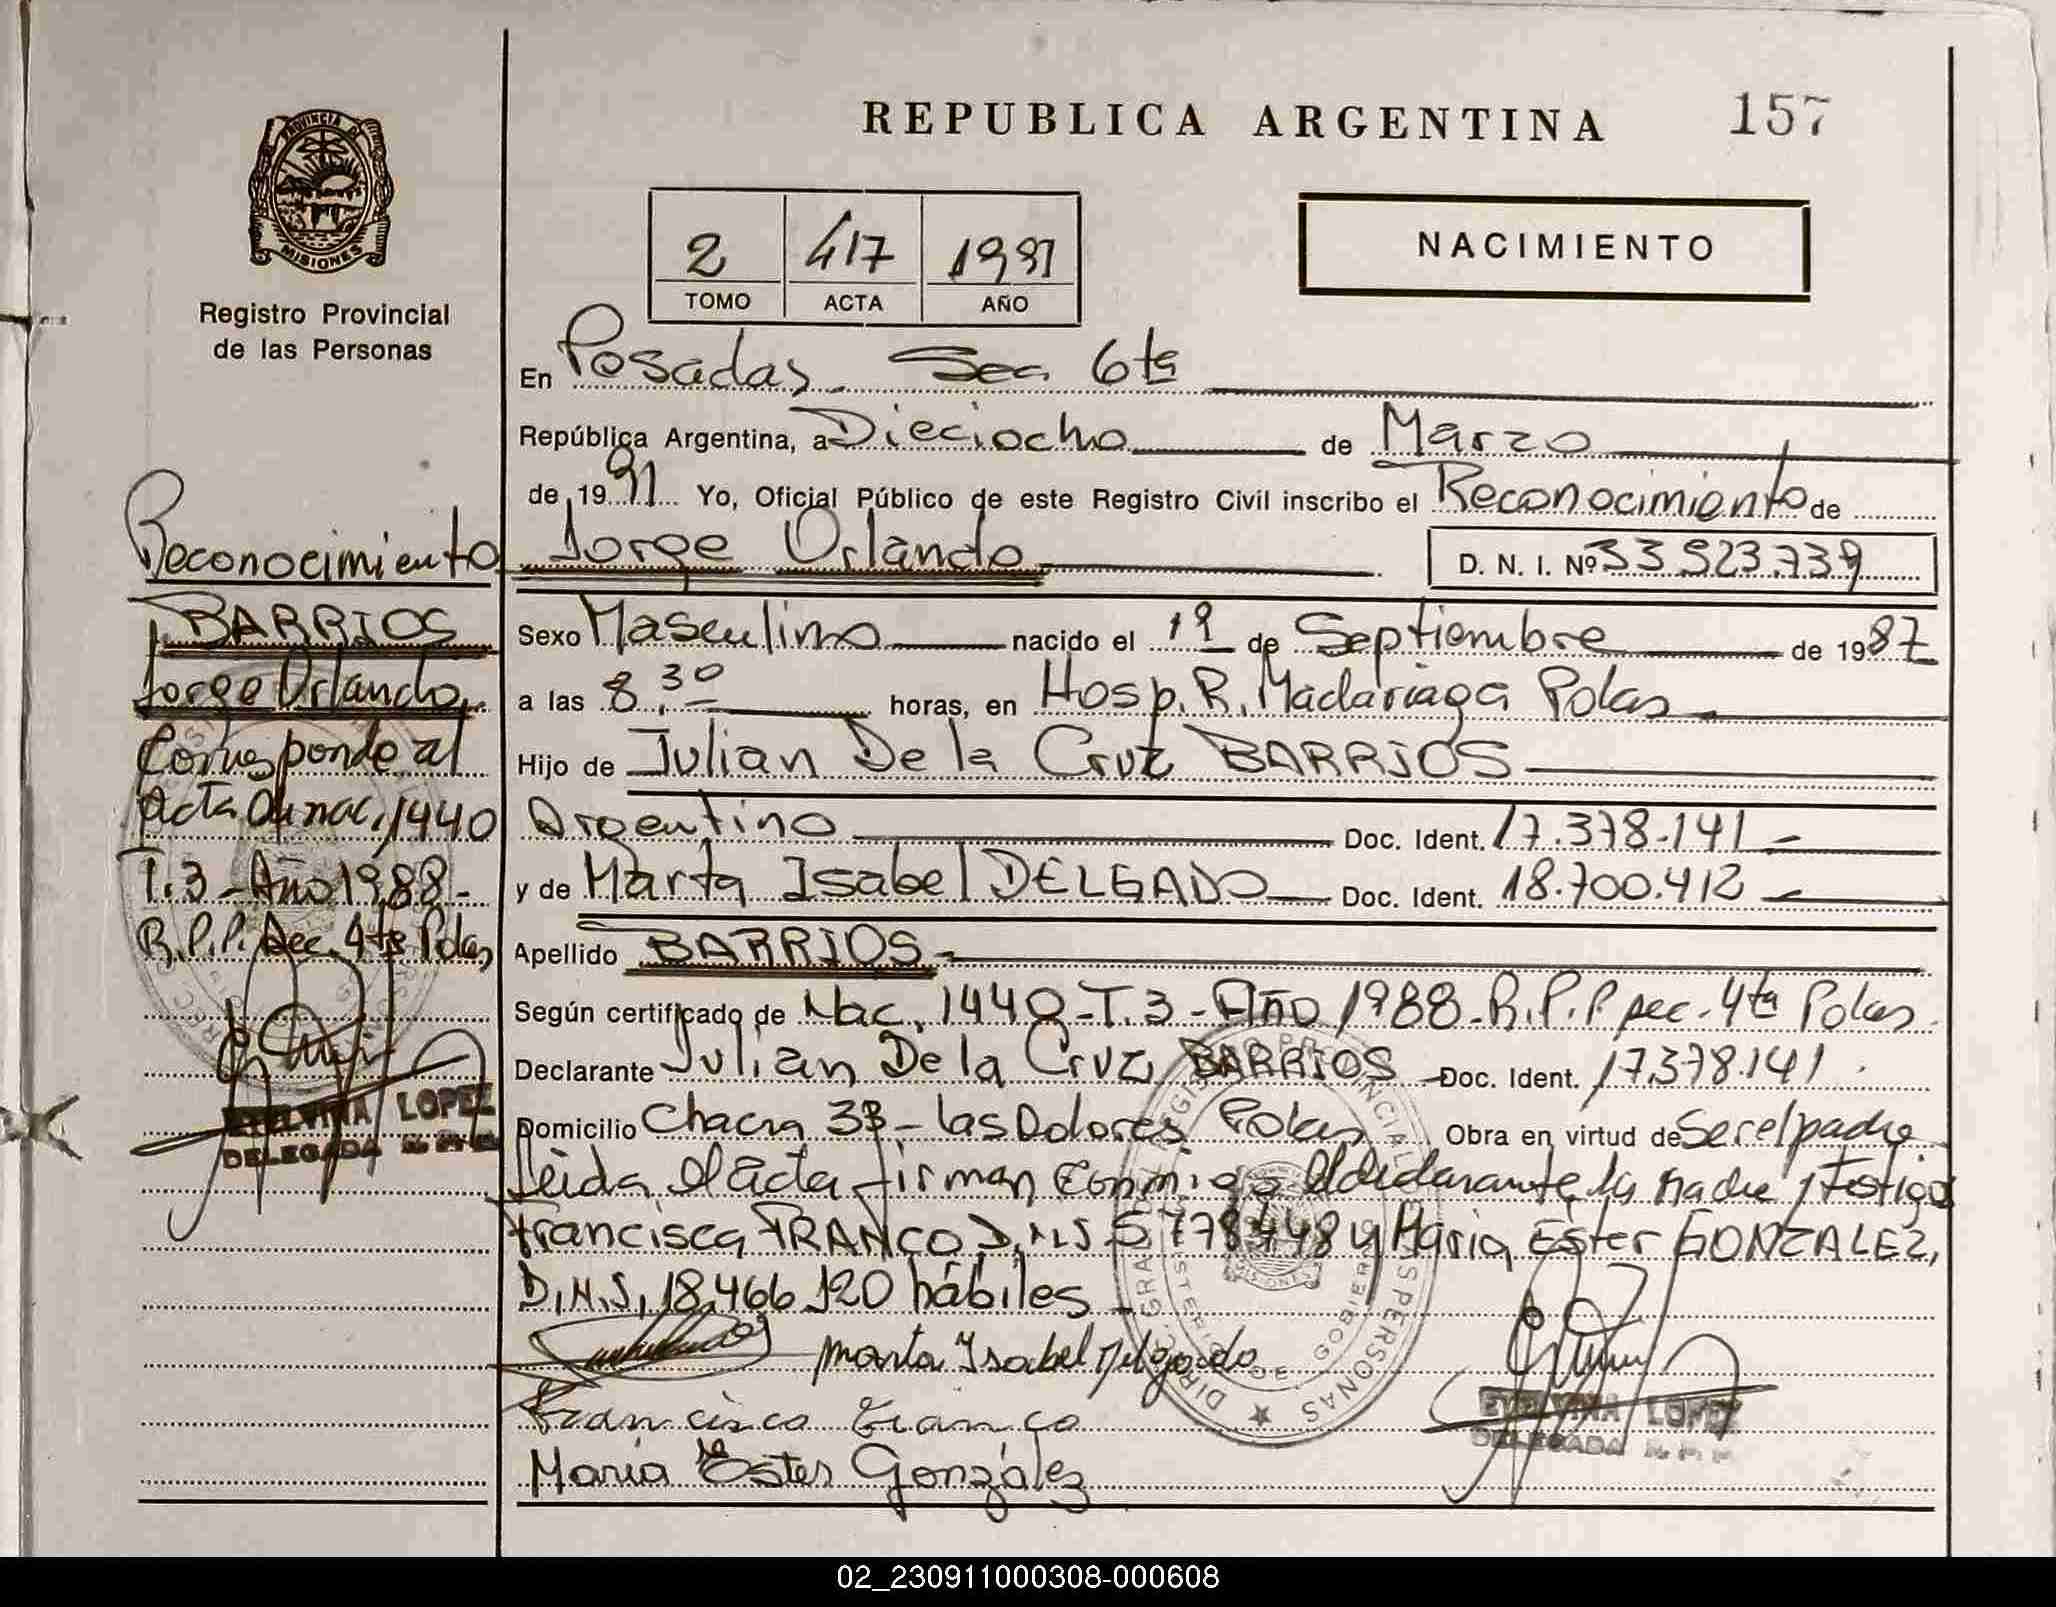 REPUBLICA ARGENTINA
157
PROVINCIA DE
MISIONES
Registro Provincial
de las Personas
2 417 1991
TOMO ACTA AÑO
NACIMIENTO
En Posadas Sec. 6ta
República Argentina, a Dieciocho de Marzo
de 1991 Yo, Oficial Público de este Registro Civil inscribo el Reconocimiento de
Jorge Orlando D. N. I. Nº 33.523.739
Sexo Masculino nacido el 19 de Septiembre de 1987
a las 8,30 horas, en Hosp. R. Madariaga Pdas
Hijo de Julian De la Cruz BARRIOS
Argentino Doc. Ident. 17.378.141
y de Marta Isabel DELGADO Doc. Ident. 18.700.412
Apellido BARRIOS
Según certificado de Nac. 1440 - T. 3 - Año 1988 - R.P.P. sec. 4ta Pdas
Declarante Julian De la Cruz BARRIOS Doc. Ident. 17.378.141
Domicilio Chacra 33 - las Dolores Pdas Obra en virtud de Ser el padre
leida el acta firman conmigo el declarante, la madre y testigos
Francisca FRANCO D.N.I 5.778.448 y Maria Ester GONZALEZ,
D.N.I, 18.466.120 hábiles
Marta Isabel Delgado
Francisca Franco
Maria Ester Gonzalez
ETELVINA LOPEZ
DELEGADA
Reconocimiento
BARRIOS
Jorge Orlando
Corresponde al
Acta de nac. 1440
T. 3 - Año 1988 -
R.P.P. Sec. 4ta Pdas
ETELVINA LOPEZ
DELEGADA
02_230911000308-000608